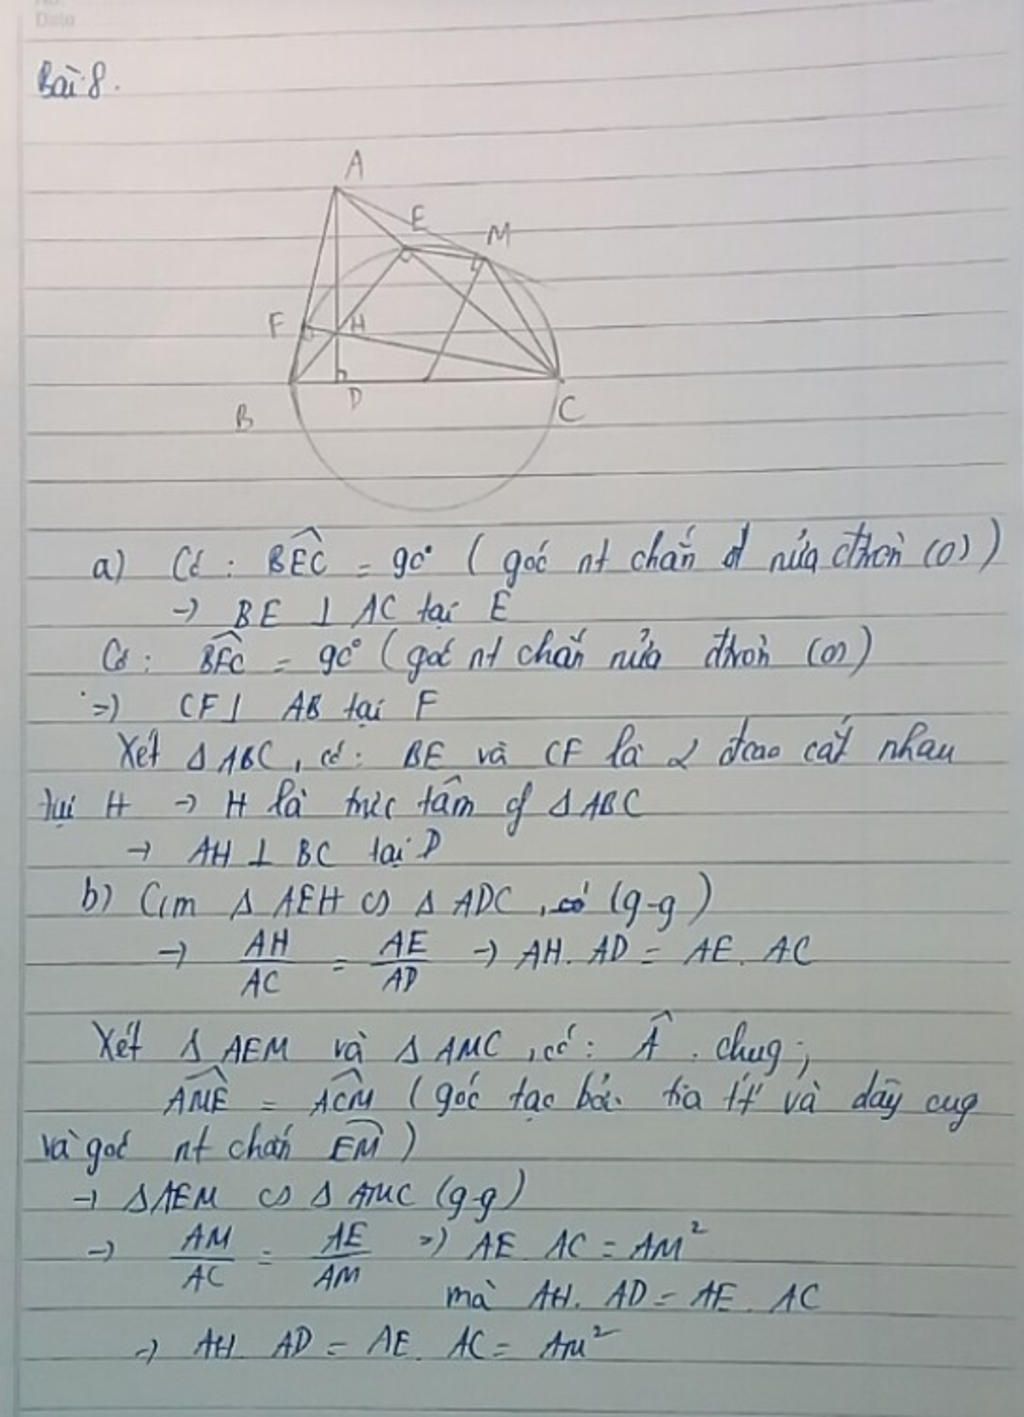 No.
Date
Bài 8.
A
E
M
F
H
D
B
C
a) Có : BEC = 90° ( góc nt chắn nửa đtròn (O) )
→ BE ⊥ AC tại E
Có : BFC = 90° ( góc nt chắn nửa đtròn (O) )
=> CF ⊥ AB tại F
Xét Δ ABC, có : BE và CF là 2 đcao cắt nhau
tại H → H là trực tâm of Δ ABC
→ AH ⊥ BC tại D
b) C/m Δ AEH ∽ Δ ADC , (g-g)
→ AH/AC = AE/AD → AH. AD = AE. AC
Xét Δ AEM và Δ AMC , có : Â chug ;
AME = ACM ( góc tạo bởi tia tt và dây cug
và góc nt chắn EM )
→ Δ AEM ∽ Δ AMC (g-g)
→ AM/AC = AE/AM => AE AC = AM²
mà AH. AD = AE. AC
→ AH AD = AE. AC = AM²